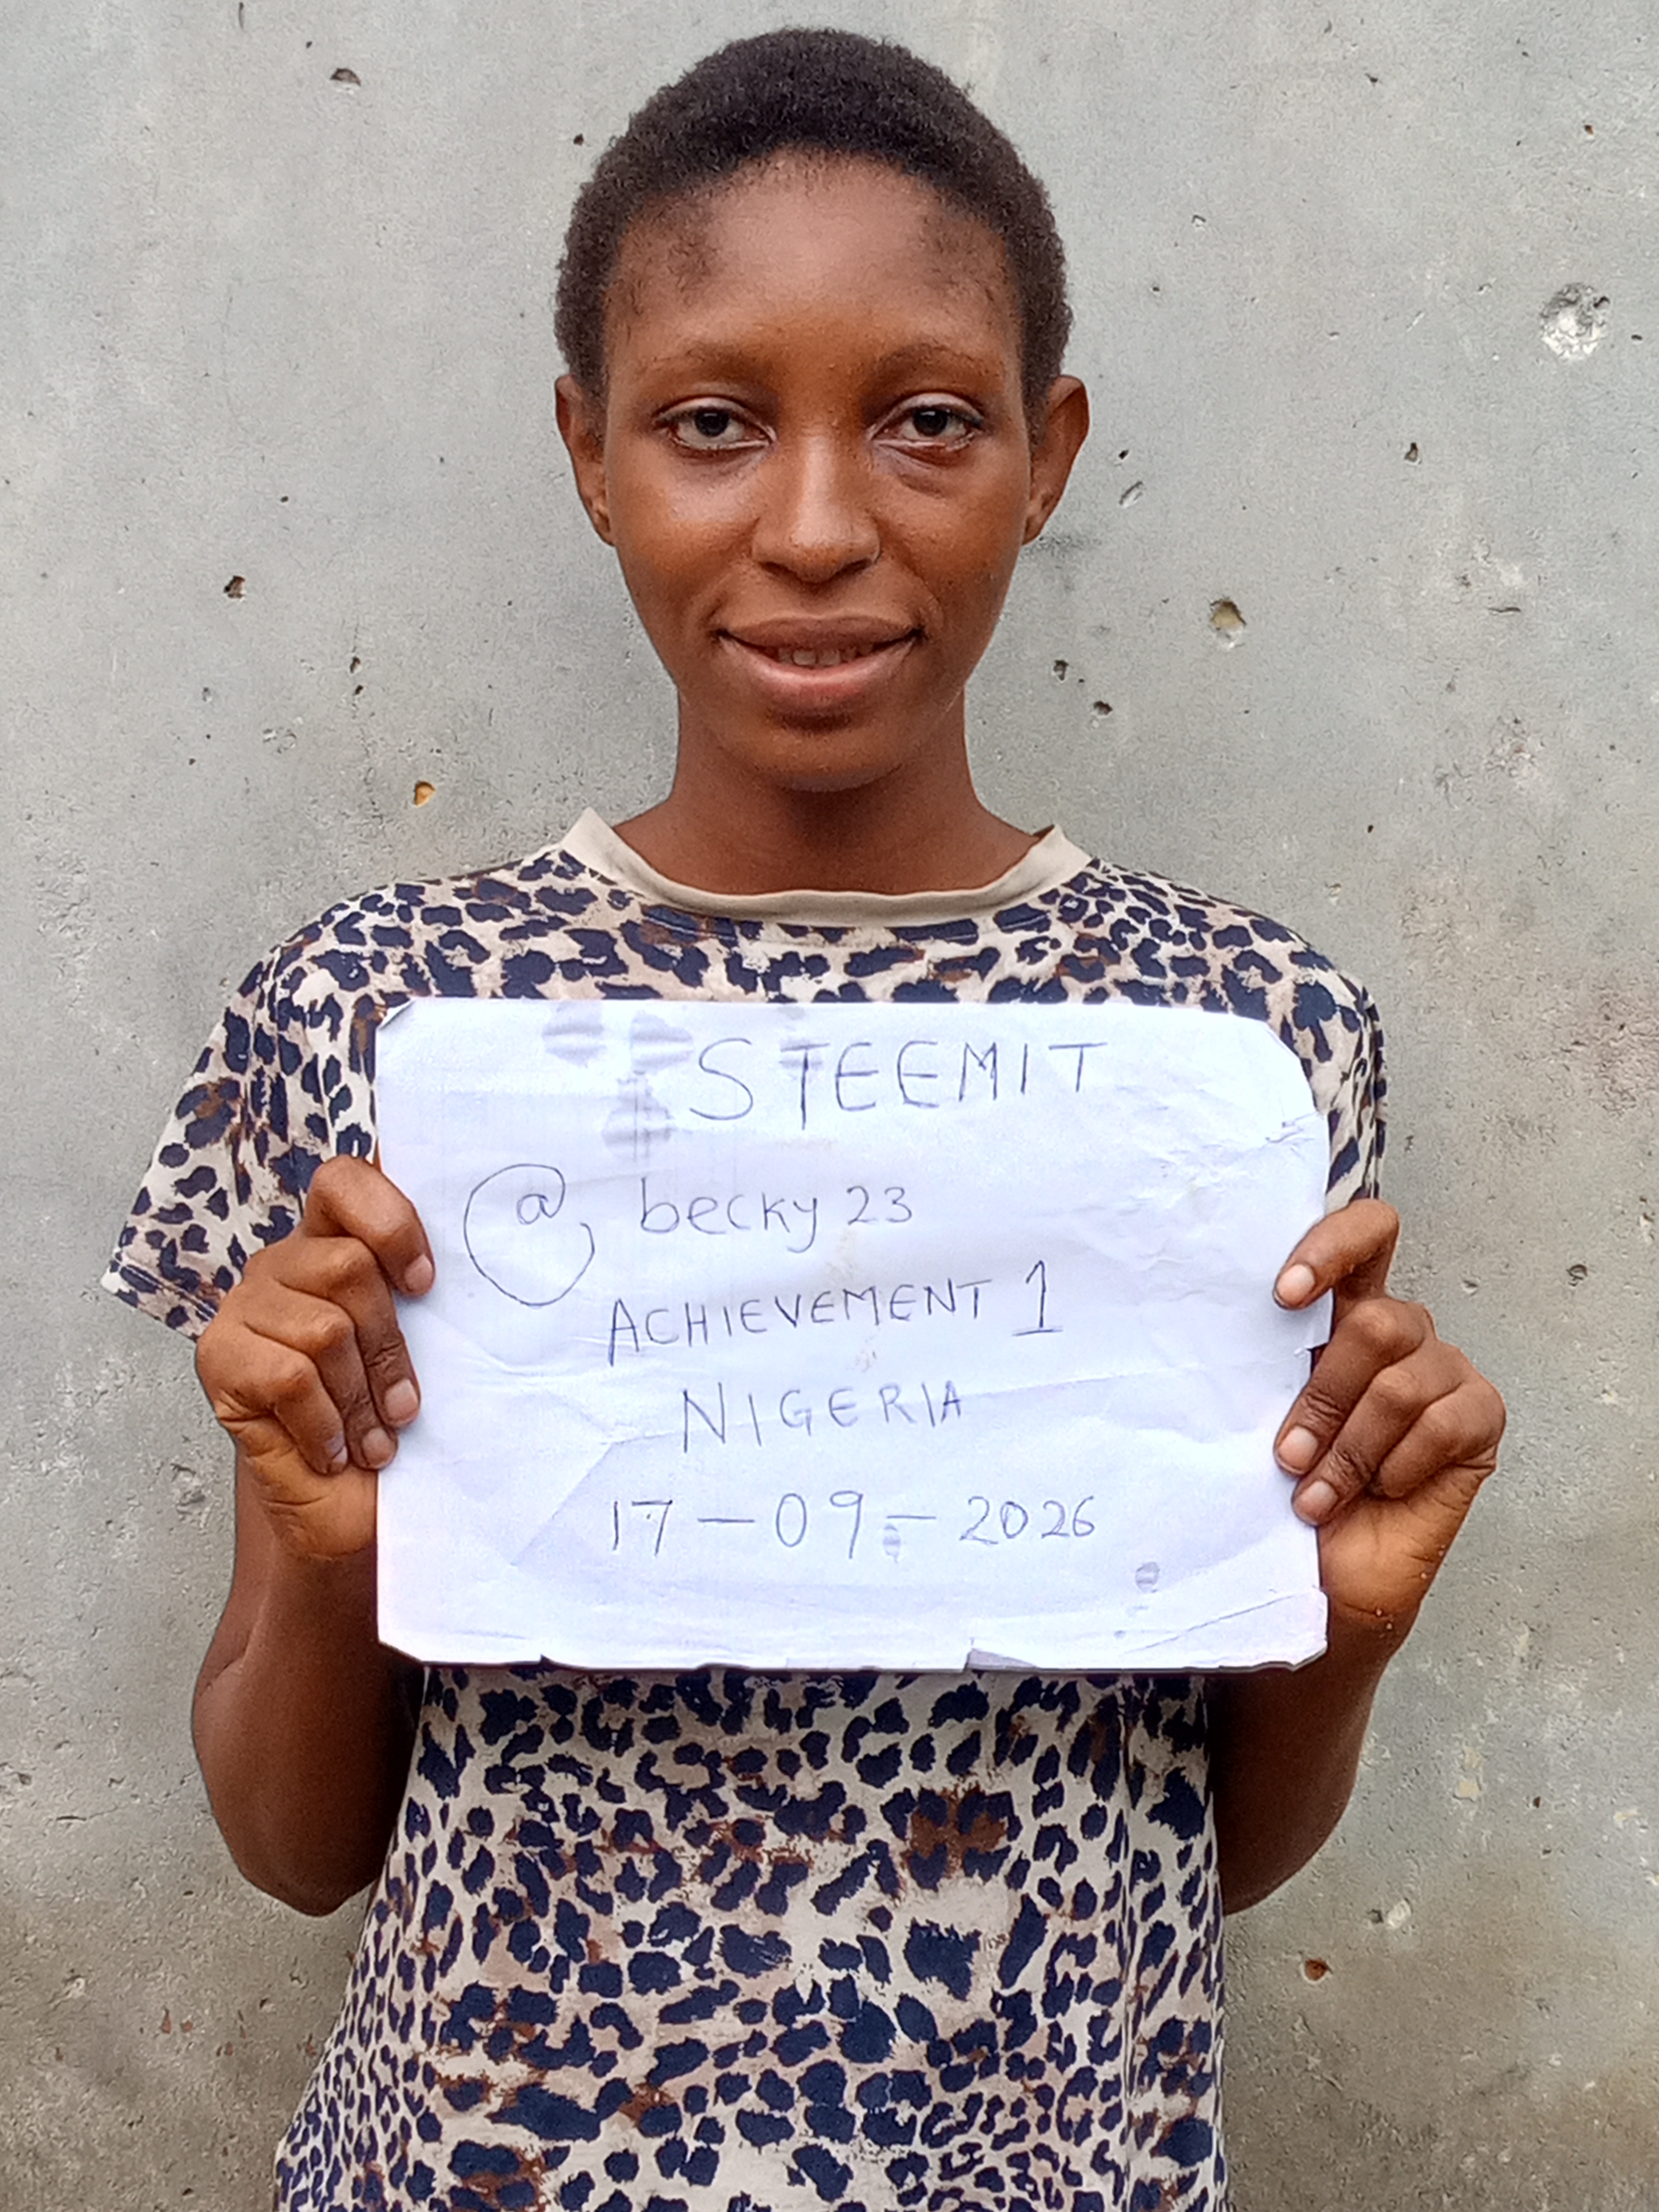 STEEMIT
@ becky 23
ACHIEVEMENT 1
NIGERIA
17-09-2026